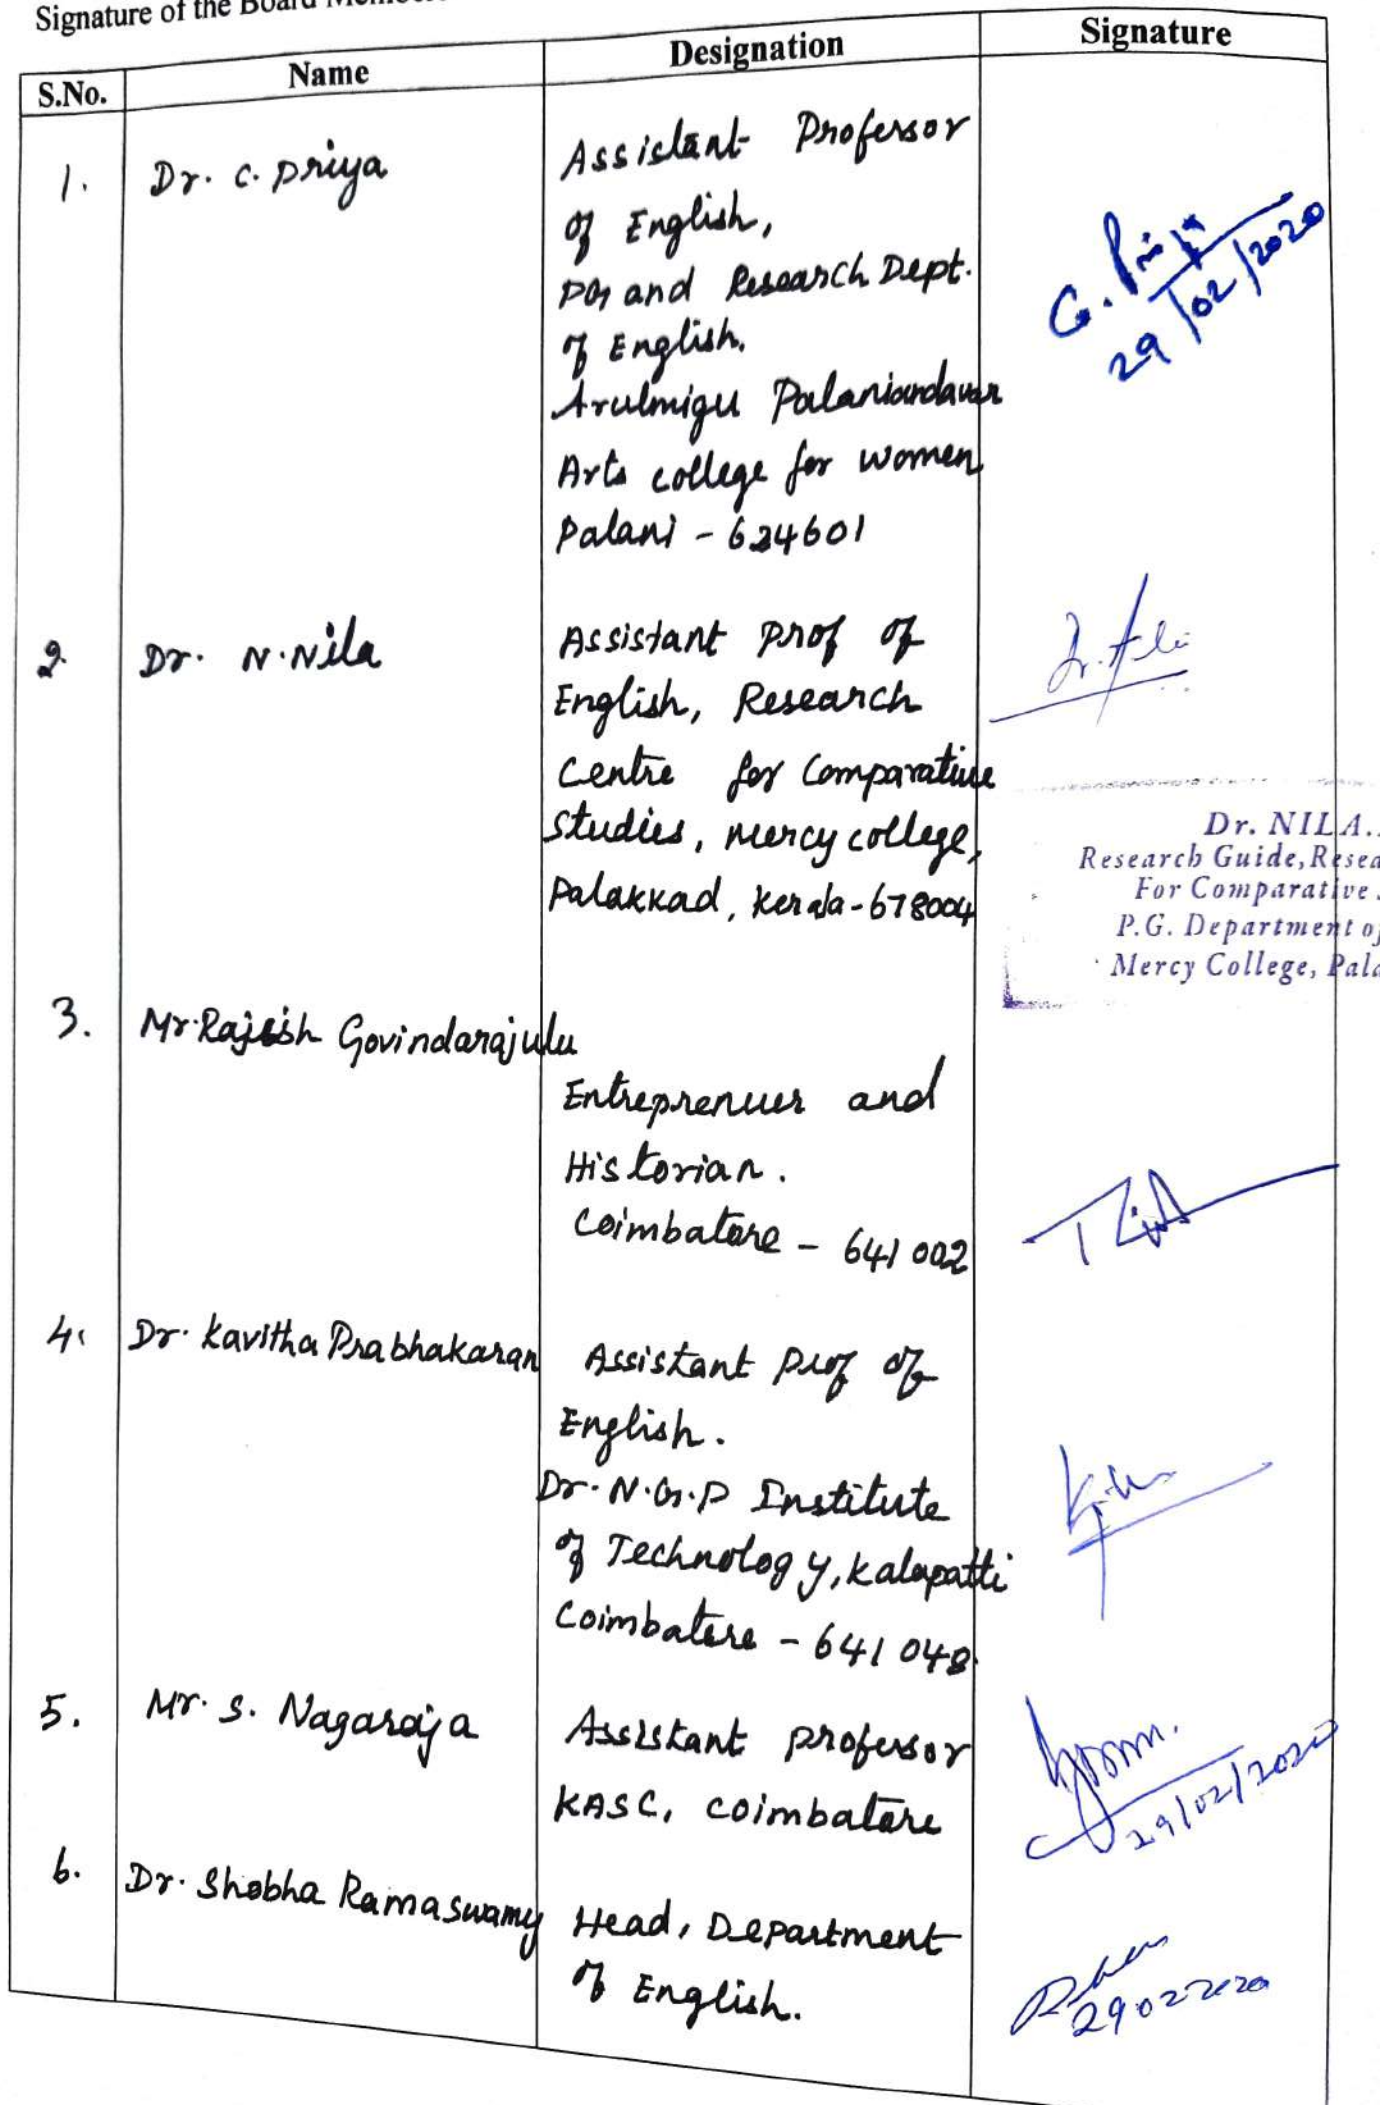 Signature of the Board Members
S.No. Name Designation Signature
1. Dr. C. Priya Assistant Professor
of English,
PG and Research Dept.
of English.
Arulmigu Palaniandavar
Arts college for women
Palani - 624601
C. Priya
29/02/2020
2. Dr. N. Nila Assistant Prof of
English, Research
Centre for Comparative
Studies, Mercy college,
Palakkad, Kerala - 678004
Dr. NILA.
Research Guide, Resea
For Comparative
P.G. Department of
Mercy College, Pala
3. Mr. Rajesh Govindarajulu
Entreprenuer and
Historian.
Coimbatore - 641 002
4. Dr. Kavitha Prabhakaran Assistant Prof of
English.
Dr. N.G.P Institute
of Technology, Kalapatti
Coimbatore - 641 048.
5. Mr. S. Nagaraja Assistant professor
KASC, Coimbatore
29/02/2020
6. Dr. Shobha Ramaswamy Head, Department
of English.
29022020